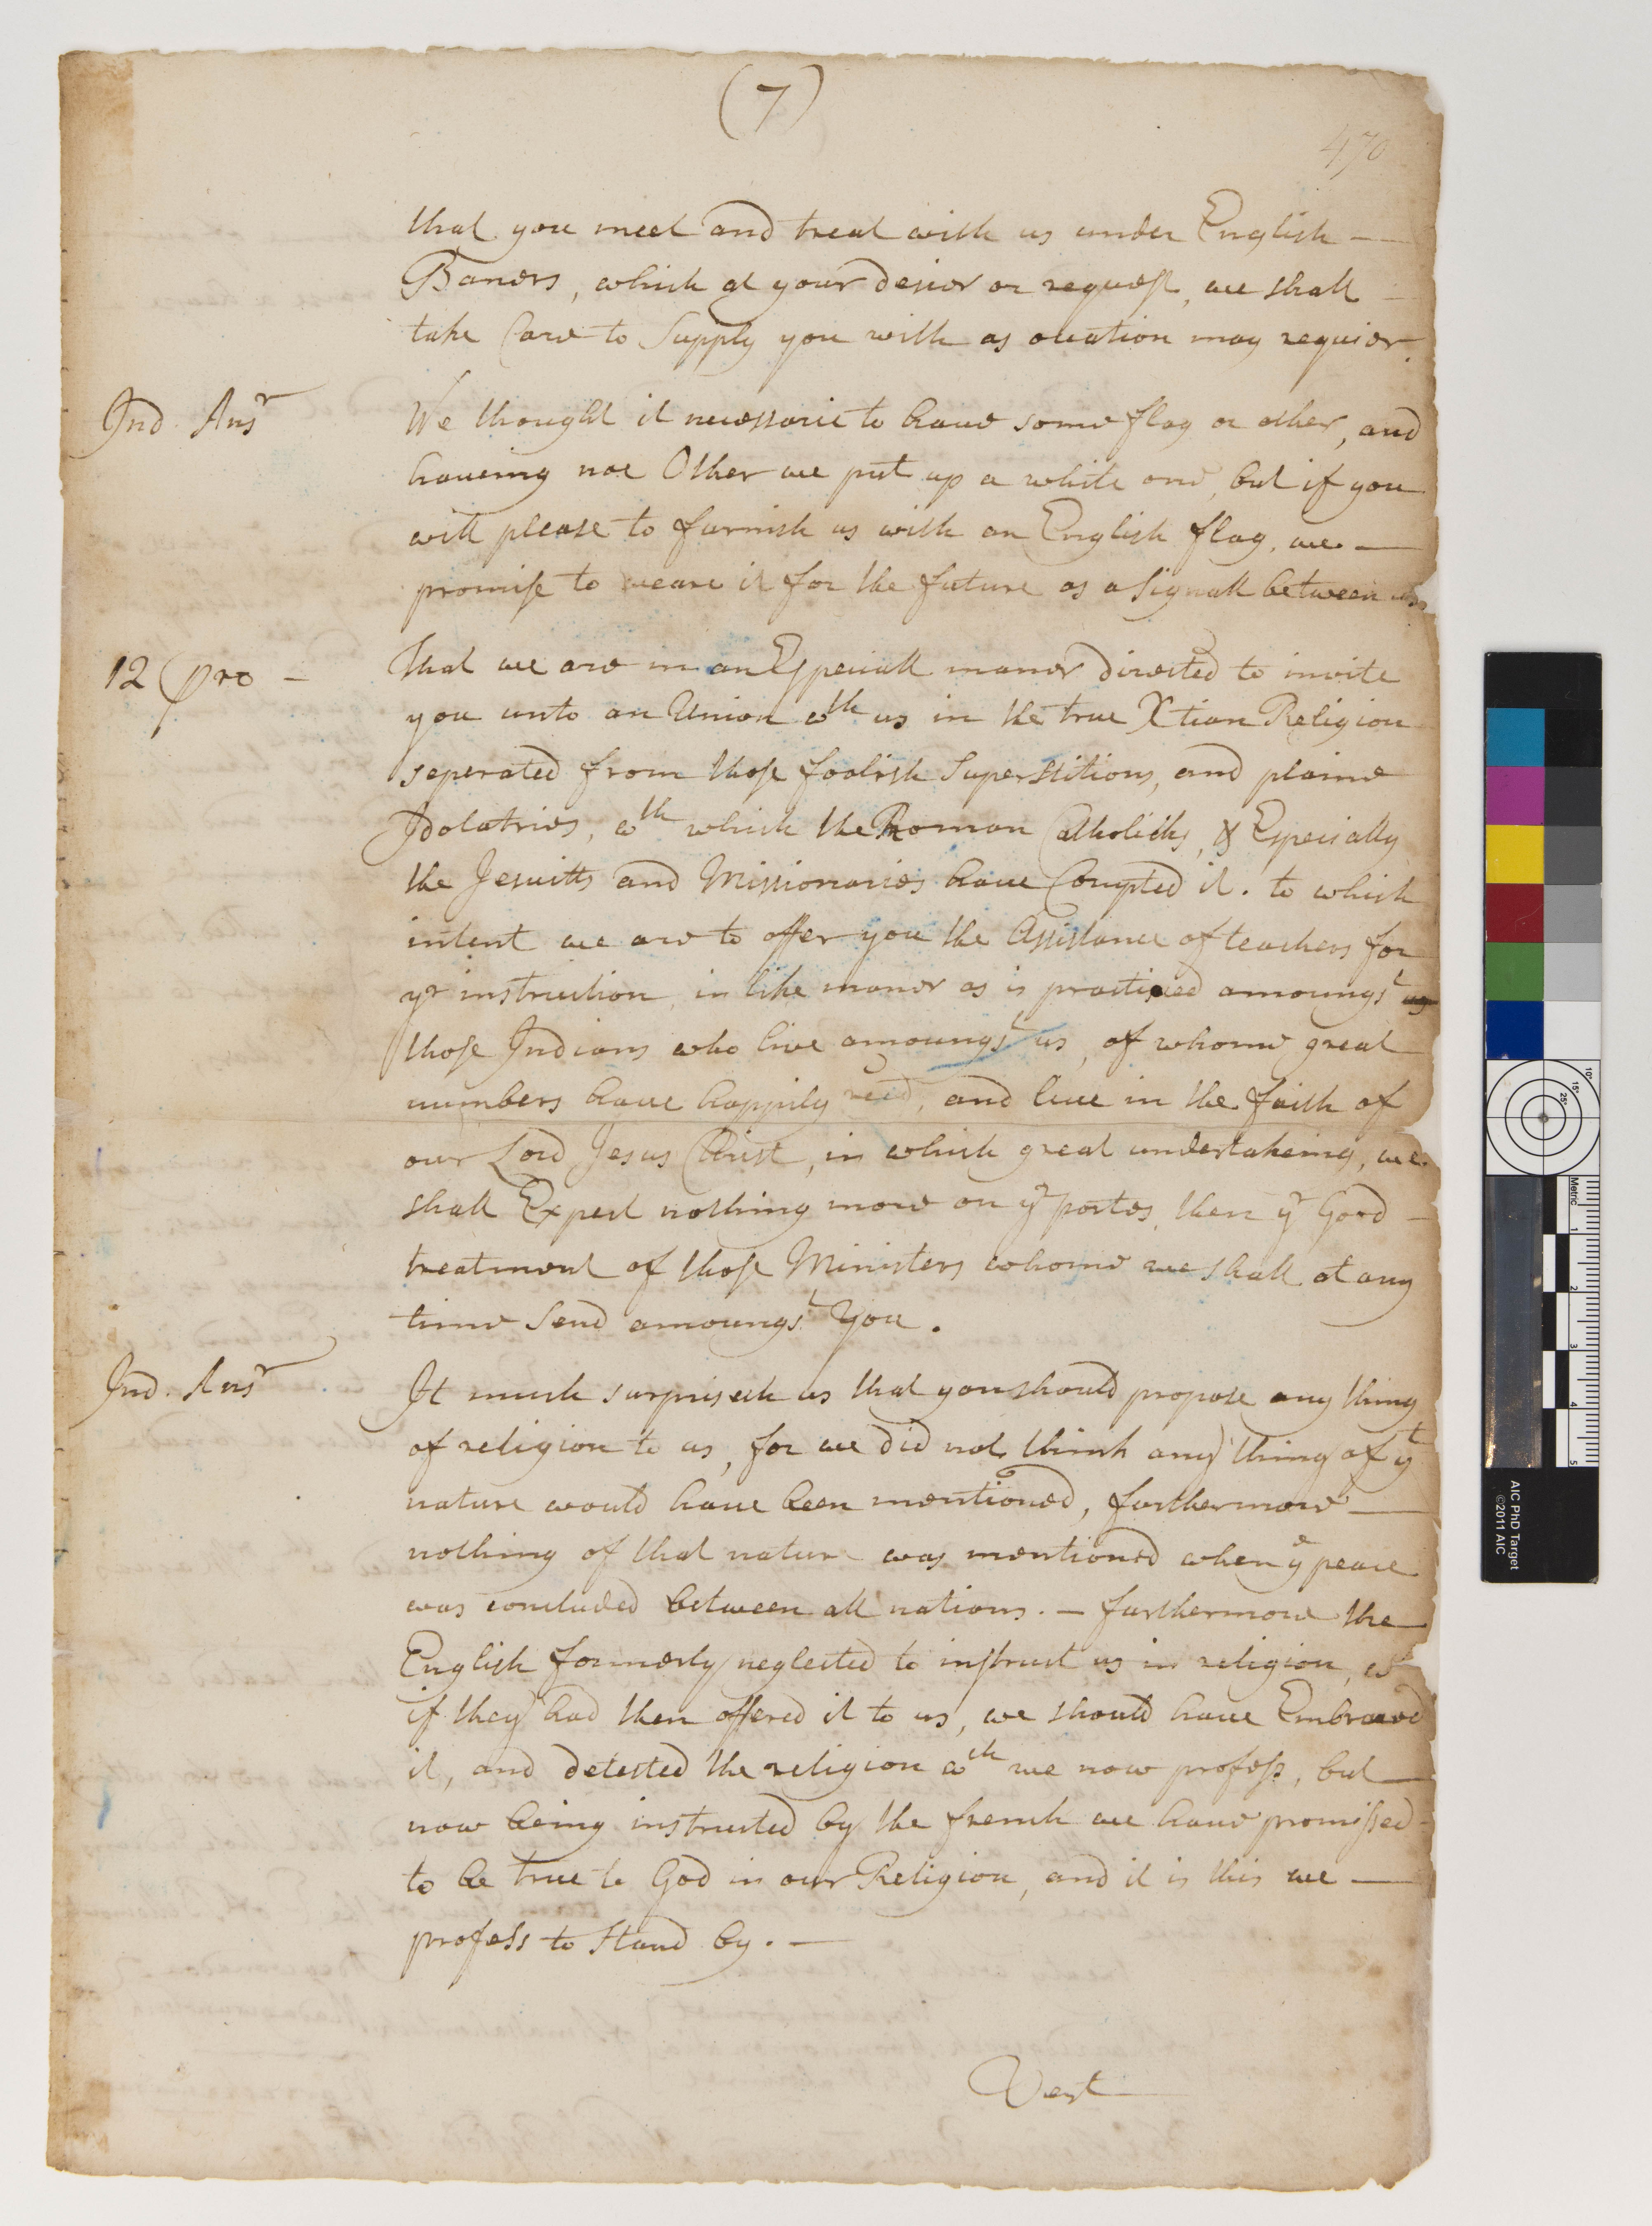 (7)
470
that you meet and treat with us under English —
Baners, which at your desier or request, we shall —
take Care to Supply you with as occation may requier.
Ind. Ansr
We thought it necessarie to have some flag or other, and
haveing noe Other we put up a white one, but if you
will please to furnish us with an English flag, we —
promise to weare it for the future as a Signall between us.
12 pro —
That we are in an Especiall maner directed to invite
you unto an Union wth us in the true Xtian Religion
seperated from those foolish Superstitions, and plaine
Idolatries, wth which the Roman Catholicks, & Especially
the Jesuitts and Missionaries have Corupted it. to which
intent we are to offer you the Assistance of teachers for
yr instruction, in like maner as is practised amoungst
those Indians who live amoungst us, of whome great
numbers have happily recd, and live in the faith of
our Lord Jesus Christ, in which great undertakeing, we
shall Expect nothing more on yr partes, then yr Good —
treatment of those Ministers whome we shall at any
time Send amoungst You.
Ind. Ansr
It much surpriseth us that you should propose any thing
of religion to us, for we did not think any thing of yt
nature would have been mentioned, furthermore —
nothing of that nature was mentioned when ye peace
was concluded between all nations. — furthermore the
English formerly neglected to instruct us in religion, wch
if they had then offered it to us, we should have Embraced
it, and detested the religion wch we now profess, but —
now being instructed by the french we have promissed —
to be true to God in our Religion, and it is this we —
profess to Stand by. —
Vert
AIC PhD Target
©2011 AIC
Metric
1
2
3
4
5
10°
15°
25°